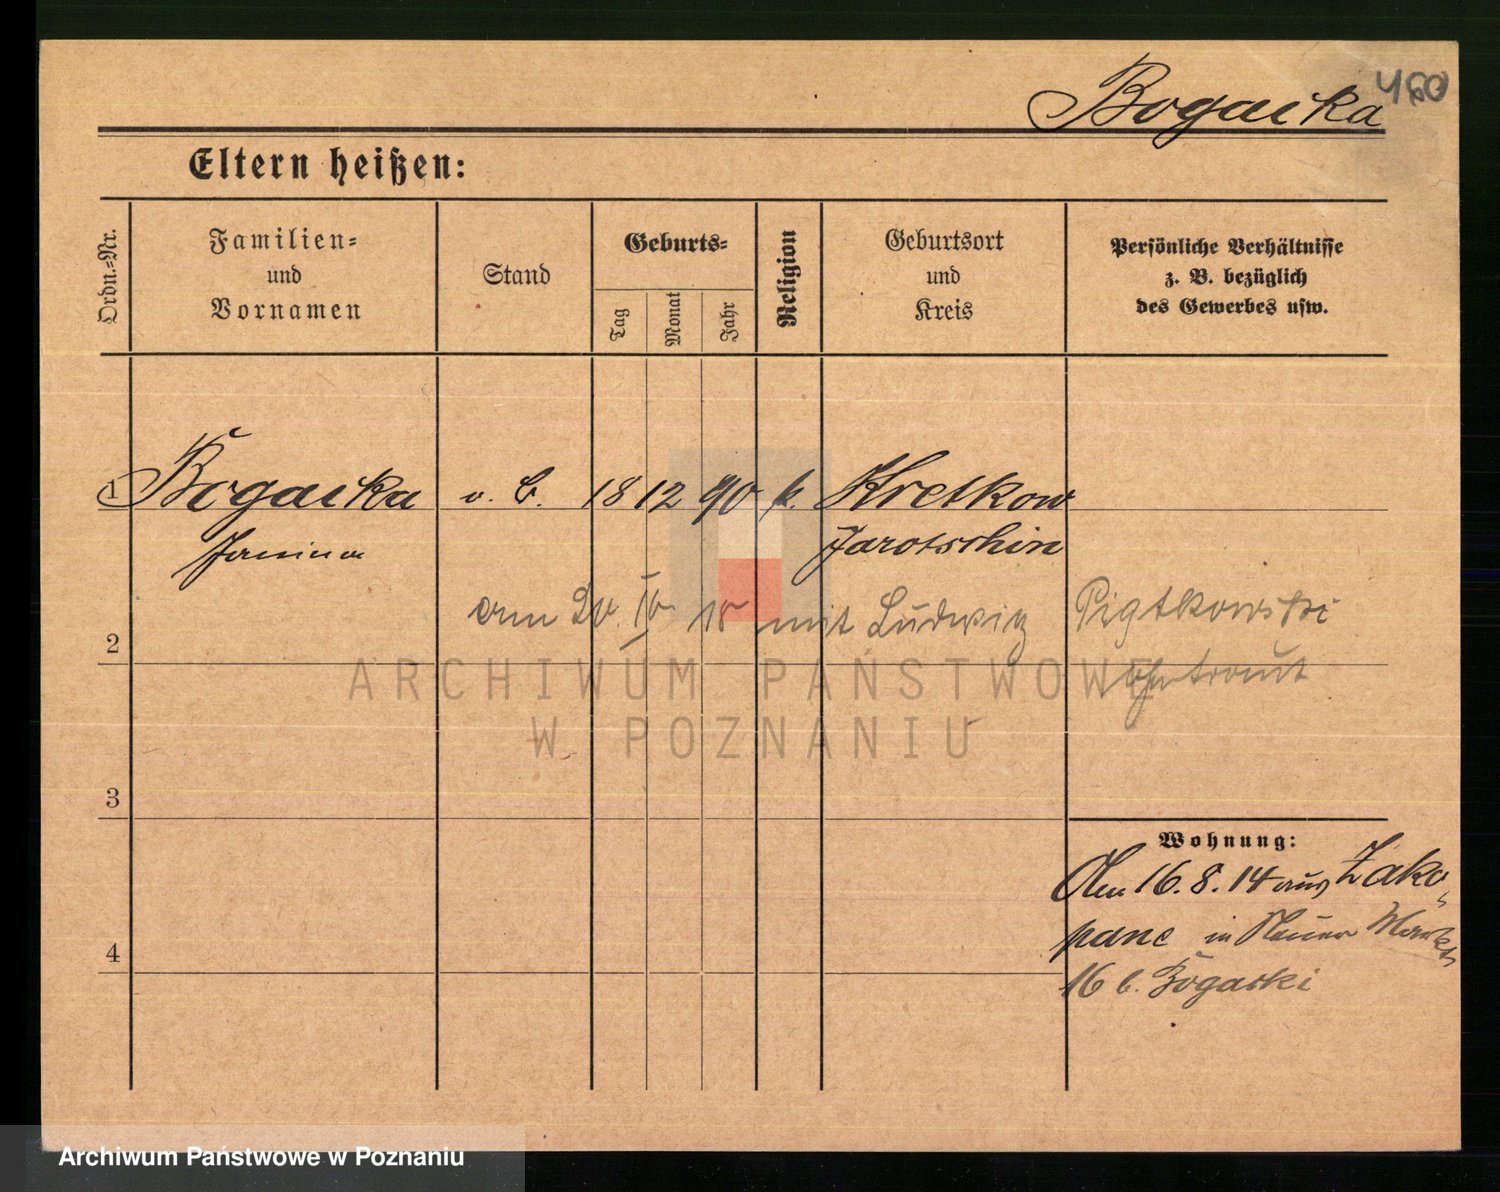 Bogacka
480
Eltern heißen:
Ordn.-Nr.
Familien-
und
Vornamen
Stand
Geburts-
Tag
Monat
Jahr
Religion
Geburtsort
und
Kreis
Persönliche Verhältnisse
z. B. bezüglich
des Gewerbes usw.
1 Bogacka o. B. 18 12 90 k. Kretkow
Janina Jarotschin
am 20. IV 18 mit Ludwig Piątkowski
2
getraut
ARCHIWUM PAŃSTWOWE
W POZNANIU
3
Wohnung:
Am 16. 8. 14 aus Zako-
pane in Neuer Markt
4
16 b. Bogacki
Archiwum Państwowe w Poznaniu